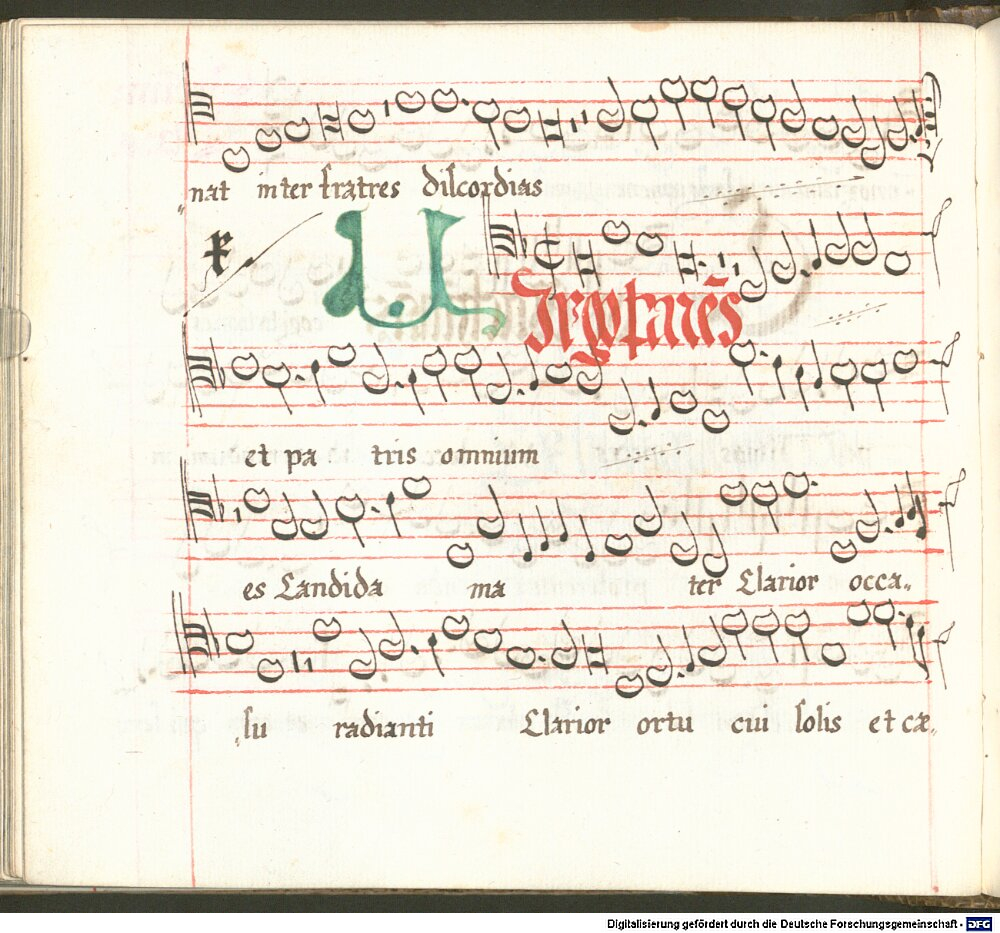 „nat inter fratres discordias
x
Virgo patrē̃s
et pa tris omnium
es Candida ma ter Clarior occa„
„su radianti Clarior ortu cui solis et cæ„
Digitalisierung gefördert durch die Deutsche Forschungsgemeinschaft - DFG